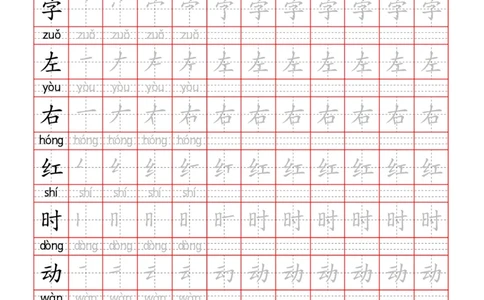 字 字 字 字 字 字 字
zuǒ zuǒ zuǒ zuǒ zuǒ
左 一 ナ 左 左 左 左 左 左 左
yòu yòu yòu yòu yòu
右 一 ナ 右 右 右 右 右 右 右
hóng hóng hóng hóng hóng
红 红 红 红 红 红 红
shí shí shí shí shí
时 丨 冂 日 时 时 时 时 时 时
dòng dòng dòng dòng dòng
动 一 二 动 动 动 动 动 动
wàn wàn wàn wàn wàn